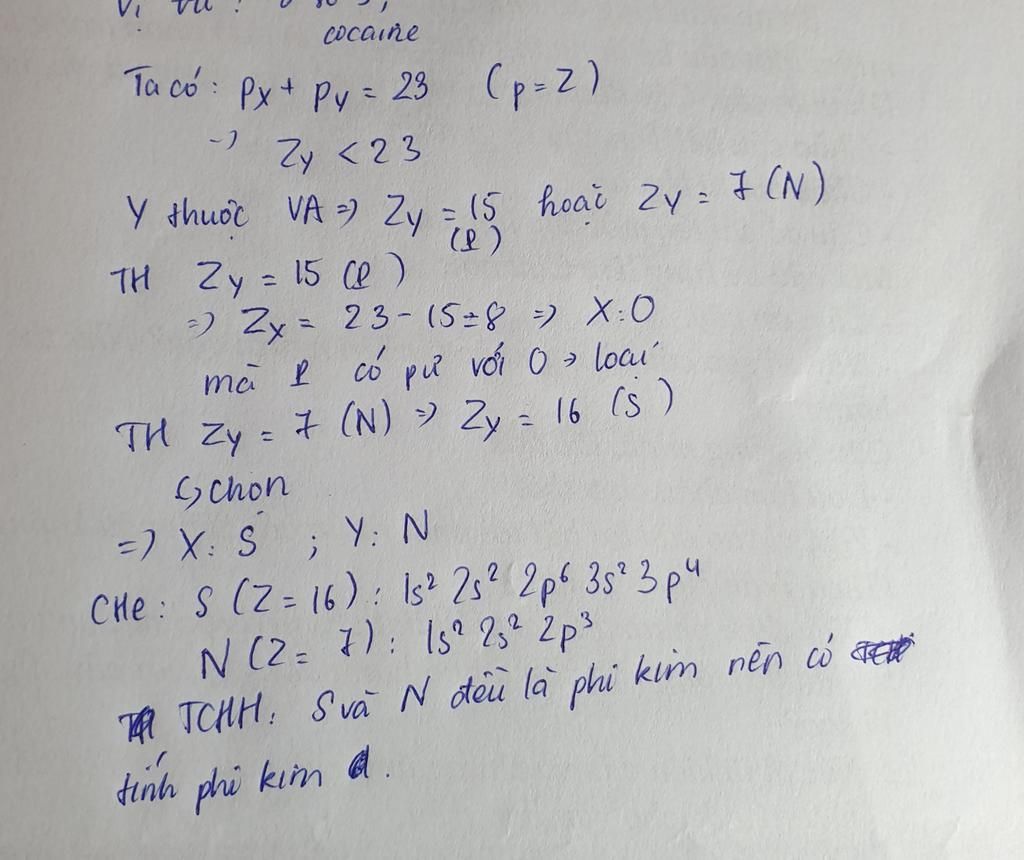 Vị trí:
cocaine
Ta có: px + py = 23 (p = Z)
-) Zy < 23
Y thuộc VA => Zy = 15 hoặc Zy = 7 (N)
(P)
TH Zy = 15 (P)
=> Zx = 23 - 15 = 8 => X: O
mà P có pư với O → loại
TH Zy = 7 (N) => Zy = 16 (S)
↳ chọn
=> X: S ; Y: N
CHe: S (Z = 16): 1s² 2s² 2p⁶ 3s² 3p⁴
N (Z = 7): 1s² 2s² 2p³
TCHH: S và N đều là phi kim nên có
tính phi kim.